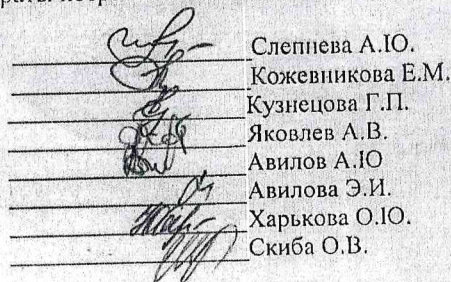 Слепнева А.Ю.
Кожевникова Е.М.
Кузнецова Г.П.
Яковлев А.В.
Авилов А.Ю
Авилова Э.И.
Харькова О.Ю.
Скиба О.В.